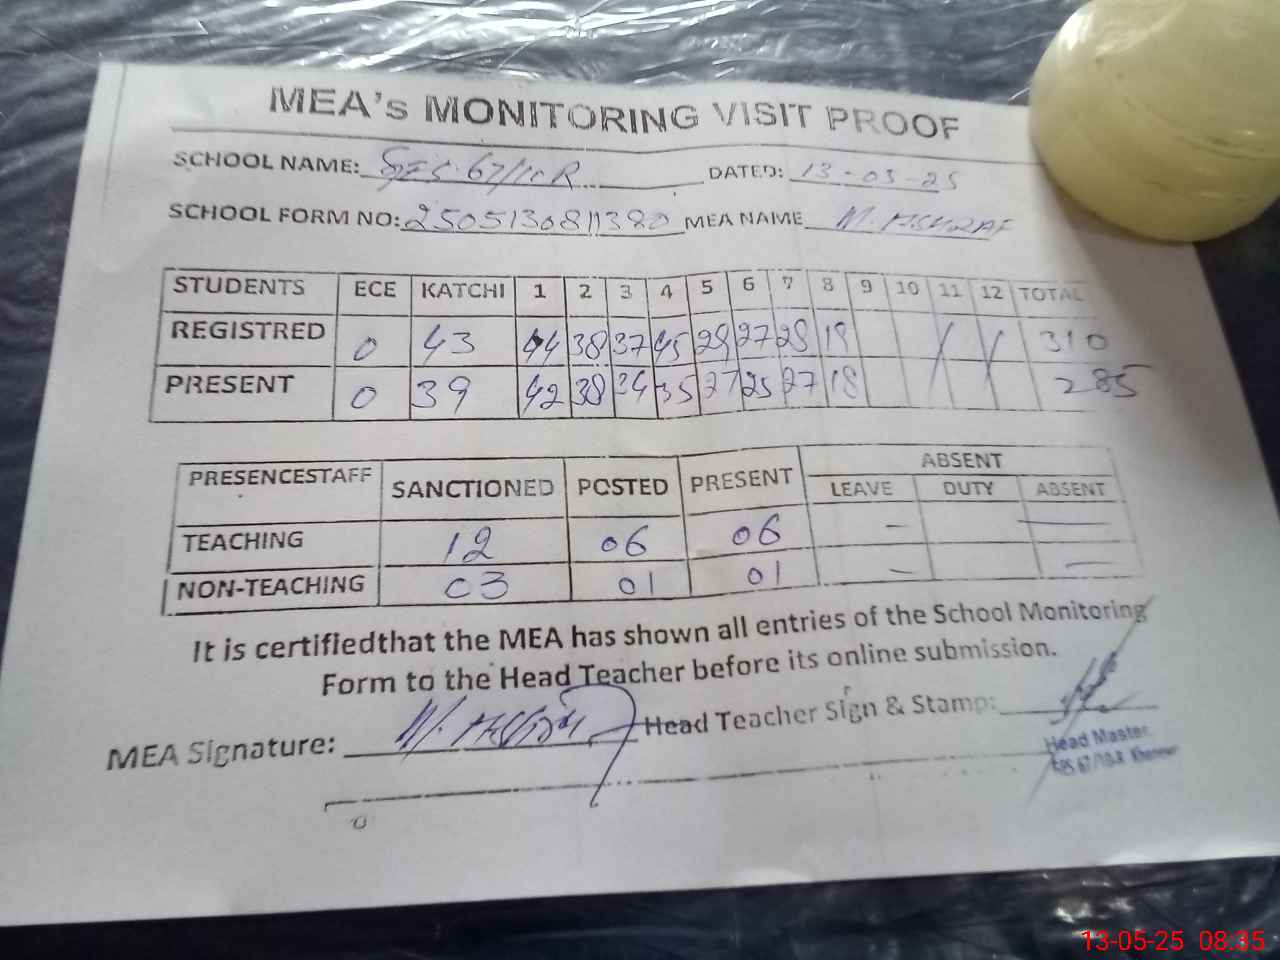 MEA's MONITORING VISIT PROOF
SCHOOL NAME: 67/10R DATED: 13-05-25
SCHOOL FORM NO: 2505130811380 MEA NAME M. ASHRAF
STUDENTS ECE KATCHI 1 2 3 4 5 6 7 8 9 10 11 12 TOTAL
REGISTRED 0 43 44 38 37 45 29 27 28 19 310
PRESENT 0 39 42 38 34 35 27 25 27 18 285
ABSENT
PRESENCESTAFF SANCTIONED POSTED PRESENT LEAVE DUTY ABSENT
TEACHING 12 06 06 – –
NON-TEACHING 03 01 01 – –
It is certifiedthat the MEA has shown all entries of the School Monitoring
Form to the Head Teacher before its online submission.
MEA Signature: M. Ashraf Head Teacher Sign & Stamp:
Head Master
67/10-R
13-05-25 08:35